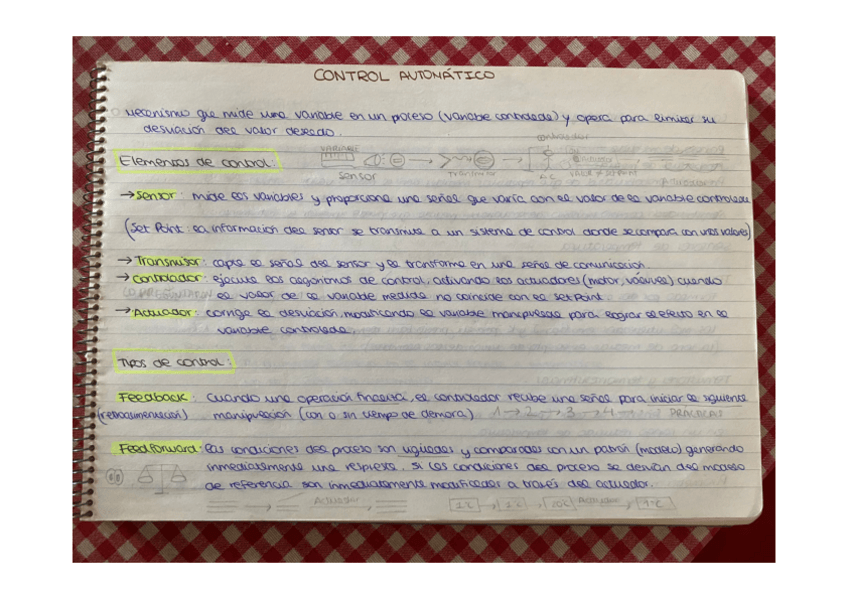 CONTROL AUTOMÁTICO
Mecanismo que mide una variable en un proceso (variable controlada) y opera para limitar su
desviación del valor deseado.
Elementos de control:
VARIABLE
controlador
sensor
transmisor
→ Sensor: mide las variables y proporciona una señal que varía con el valor de la variable controlada
(Set Point: la información del sensor se transmite a un sistema de control donde se compara con unos valores)
→ Transmisor: capta la señal del sensor y la transforma en una señal de comunicación.
→ Controlador: ejecuta los algoritmos de control, activando los actuadores (motor, válvulas) cuando
el valor de la variable medida no coincide con el setPoint
→ Actuador: corrige la desviación, modificando la variable manipulada para lograr el efecto en la
variable controlada.
Tipos de control:
Feedback: cuando una operación finaliza, el controlador recibe una señal para iniciar la siguiente
(retroalimentación) manipulación (con o sin tiempo de demora) 1 → 2 → 3 → 4 → PRÁCTICAS
Feedforward: las condiciones del proceso son vigiladas y comparadas con un patrón (modelo) generando
inmediatamente una respuesta. Si las condiciones del proceso se desvían del modelo
de referencia son inmediatamente modificadas a través del actuador.
Actuador
Actuador